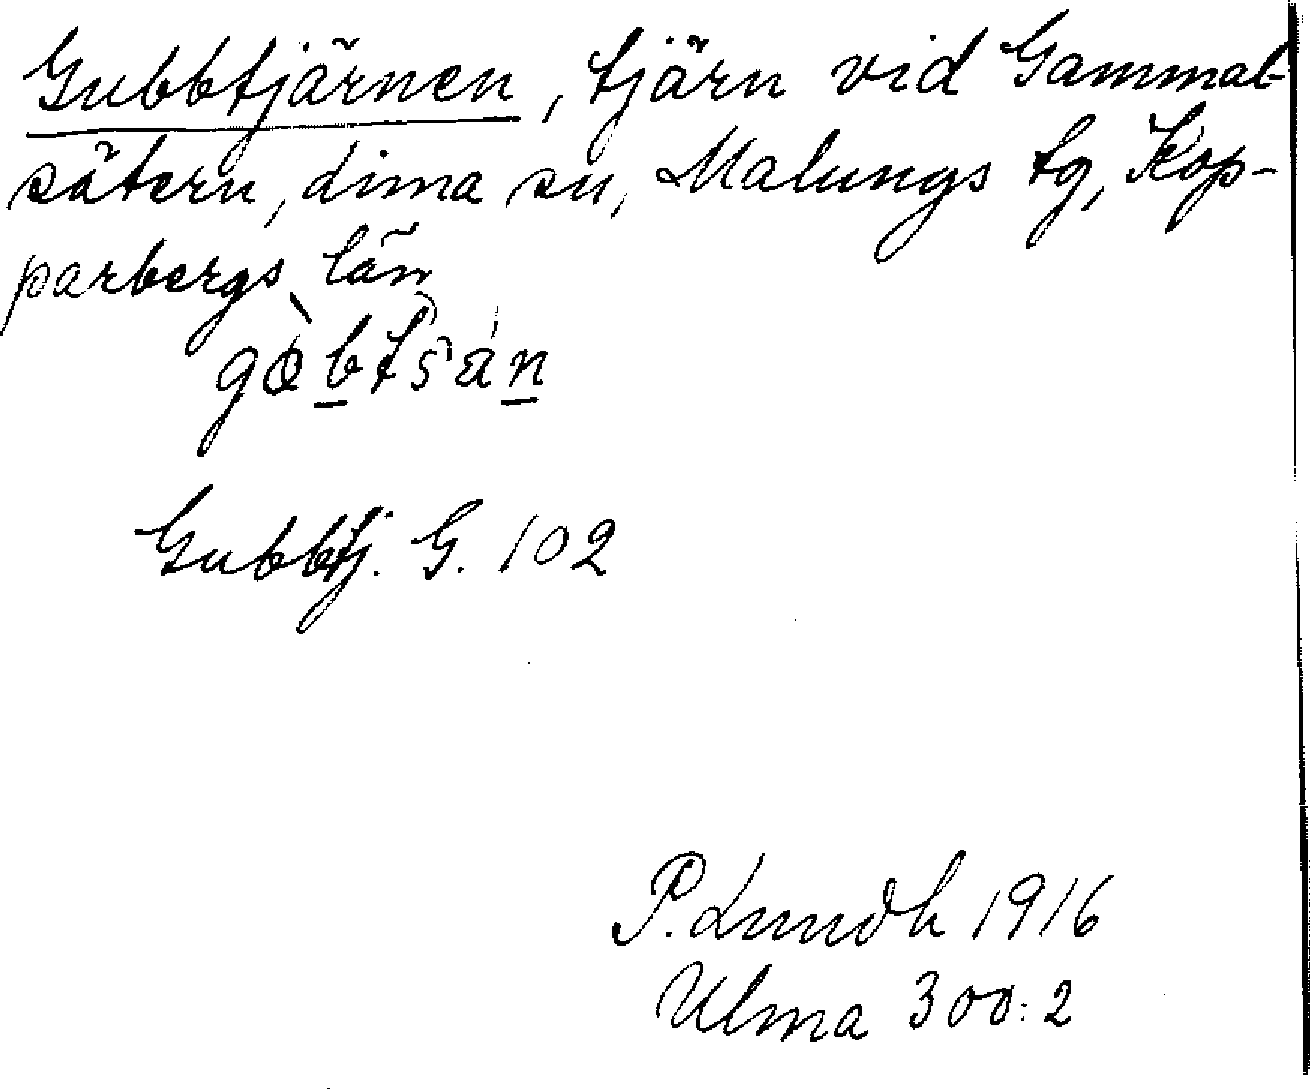 Gubbtjärnen, tjärn vid Gammal-
sätern, Lima sn, Malungs tg, Kop-
parbergs län
Gubbtj. G. 102
P. Lundh 1916
Ulma 300:2